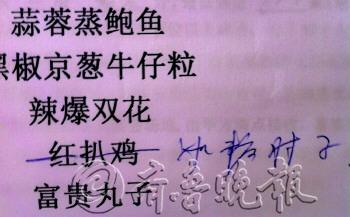 蒜蓉蒸鲍鱼
黑椒京葱牛仔粒
辣爆双花
红扒鸡 如 肘子
富贵丸子
@齐鲁晚报